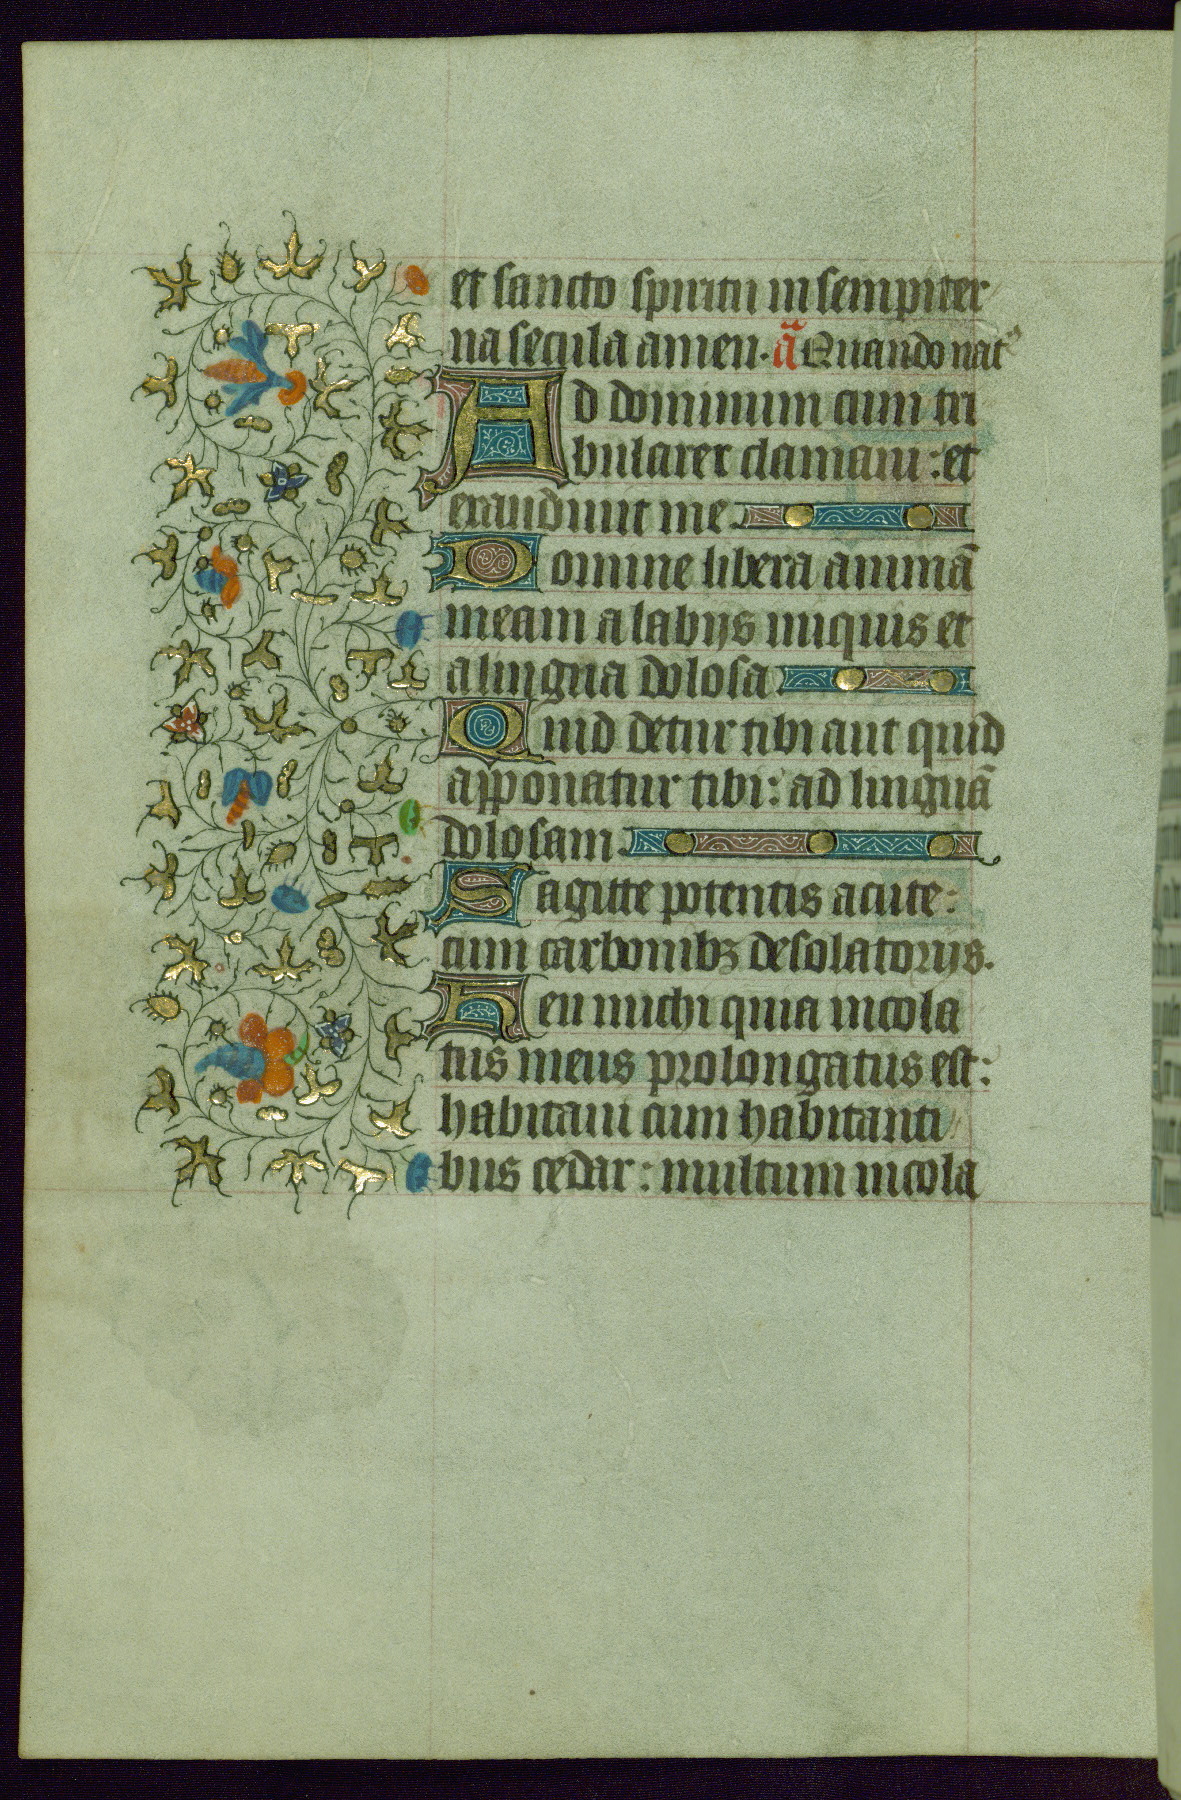 et sancto spiritu in sempiter
na secula amen. a͞ Quando natꝰ
Ad dominum cum tri
bularer clamaui: et
exaudiuit me
Domine libera animā
meam a labijs iniquis et
a lingua dolosa
Quid detur tibi aut quid
apponatur tibi: ad linguā
dolosam
Sagitte potentis acute:
cum carbonibꝫ desolatorijs.
Heu michi quia incola
tus meus prolongatus est:
habitaui cum habitanti
bus cedar: multum incola